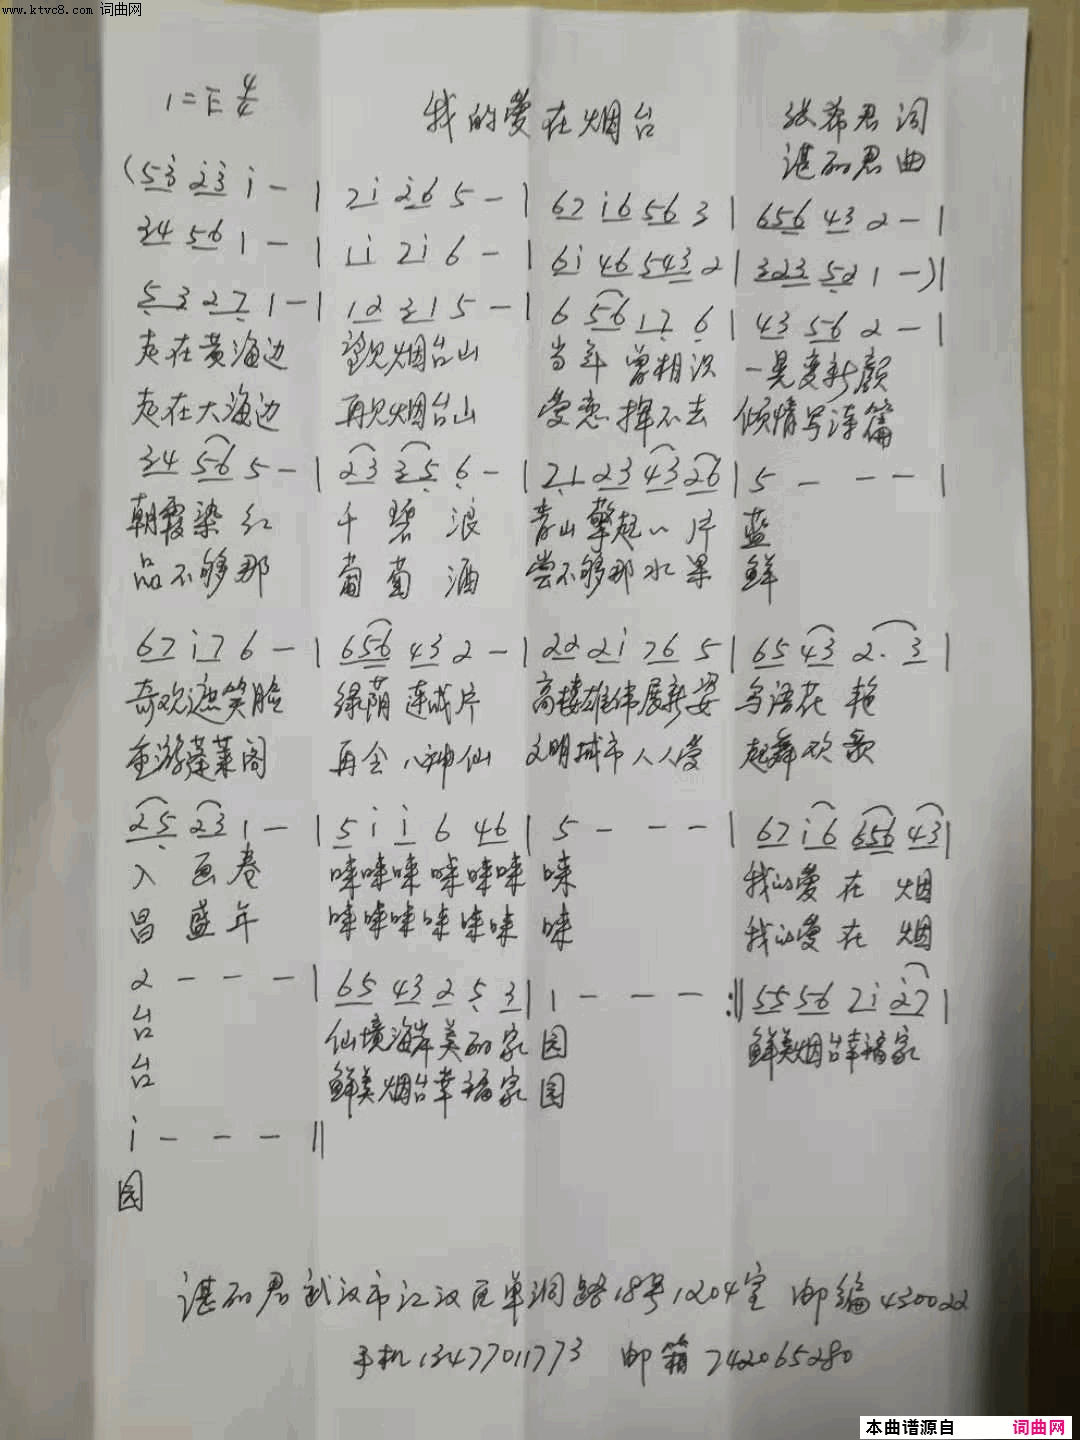 www.ktvc8.com 词曲网
1=E 4/4 我的爱在烟台 张希君 词
谌丽君 曲
(53 23 i - | 7i 26 5 - | 67 i6 56 3 | 656 43 2 - |
34 56 1 - | 1i 7i 6 - | 6i 46 543 2 | 323 521 -)|
5 3 27 1 - | 12 31 5 - | 6 56 17 6 | 43 56 2 - |
走在黄海边 望见烟台山 当年曾相识 一晃变新颜
走在大海边 再见烟台山 爱恋挥不去 倾情写诗篇
34 56 5 - | 23 35 6 - | 71 23 43 26 | 5 - - - |
朝霞染红 千碧浪 青山擎起一片 蓝
品不够那 葡萄酒 尝不够那水果 鲜
67 i7 6 - | 656 43 2 - | 22 2i 76 5 | 65 43 2. 3 |
奇欢遮笑脸 绿荫连成片 高楼雄伟展新姿 鸟语花艳
重游蓬莱阁 再会八神仙 文明城市人人爱 起舞欢歌
25 23 1 - | 5 i i 6 46 | 5 - - - | 67 i6 656 43 |
入画卷 唻唻唻唻唻唻 唻 我的爱在烟
昌盛年 唻唻唻唻唻唻 唻 我的爱在烟
2 - - - | 65 43 2 5 3 | 1 - - - :‖ 55 56 7i 27 |
台 仙境海岸美丽家 园 鲜美烟台幸福家
台 鲜美烟台幸福家 园
i - - - ‖
园
谌丽君 武汉市江汉区单洞路18号1204室 邮编430022
手机13477011773 邮箱742065280
本曲谱源自 词曲网